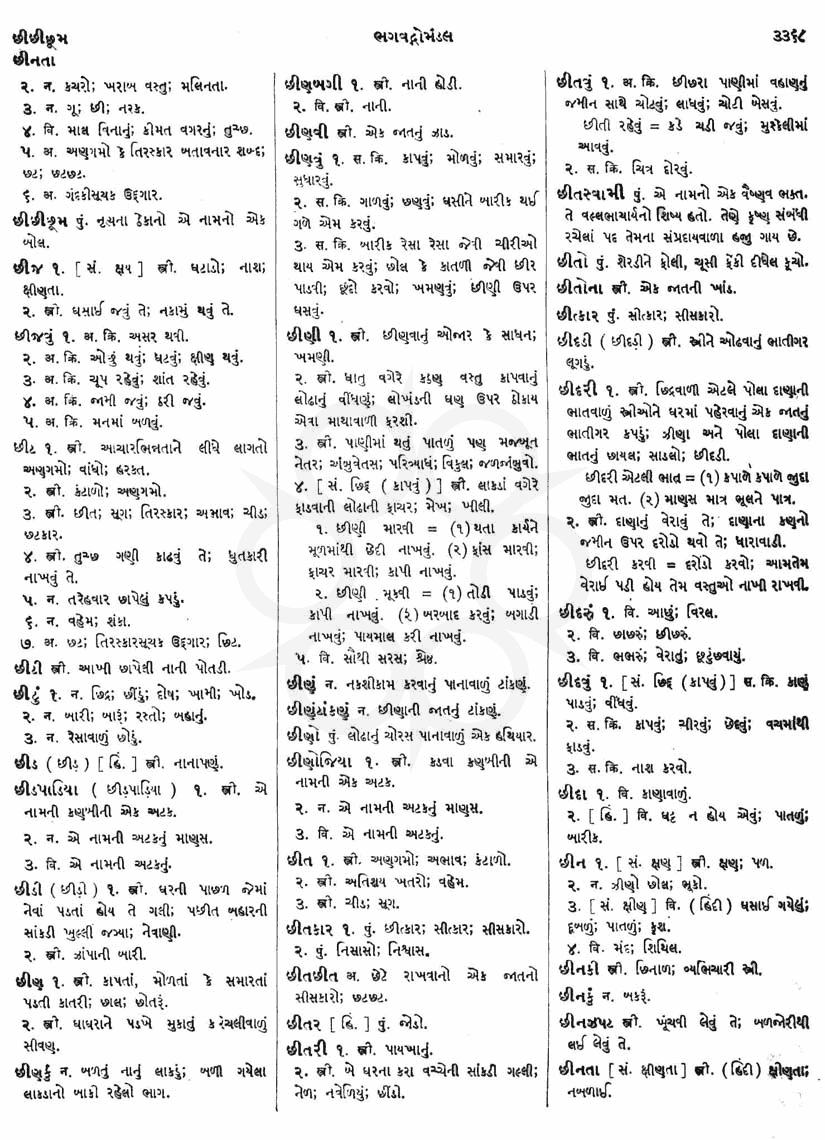 છીછીછૂમ
ભગવદ્ગોમંડલ
૩૩૬૮
છીનતા
૨. ન. કચરો; ખરાબ વસ્તુ; મલિનતા.
૩. ન. ગૂ; છી; નરક.
૪. વિ. માલ વિનાનું; કીમત વગરનું; તુચ્છ.
૫. અ. અણગમો કે તિરસ્કાર બતાવનાર શબ્દ;
છટ; છટછટ.
૬. અ. ગંદકીસૂચક ઉદ્ગાર.
છીછીછૂમ પું. નૃત્યના ઠેકાનો એ નામનો એક
બોલ.
છીજ ૧. [ સં. ક્ષય ] સ્ત્રી. ઘટાડો; નાશ;
ક્ષીણતા.
૨. સ્ત્રી. ઘસાઈ જવું તે; નકામું થવું તે.
છીજવું ૧. અ. ક્રિ. અસર થવી.
૨. અ. ક્રિ. ઓછું થવું; ઘટવું; ક્ષીણ થવું.
૩. અ. ક્રિ. ચૂપ રહેવું; શાંત રહેવું.
૪. અ. ક્રિ. જામી જવું; ઠરી જવું.
૫. અ. ક્રિ. મનમાં બળવું.
છીટ ૧. સ્ત્રી. આચારભિન્નતાને લીધે લાગતો
અણગમો; વાંધો; હરકત.
૨. સ્ત્રી. કંટાળો; અણગમો.
૩. સ્ત્રી. છીત; સૂગ; તિરસ્કાર; અભાવ; ચીડ;
છટકાર.
૪. સ્ત્રી. તુચ્છ ગણી કાઢવું તે; ધુતકારી
નાખવું તે.
૫. ન. તરેહવાર છાપેલું કપડું.
૬. ન. વહેમ; શંકા.
૭. અ. છટ; તિરસ્કારસૂચક ઉદ્ગાર; છિટ.
છીટી સ્ત્રી. આખી છાપેલી નાની પોતડી.
છીટું ૧. ન. છિદ્ર; છીંડું; દોષ; ખામી; ખોડ.
૨. ન. બારી; બારૂં; રસ્તો; બહાનું.
૩. ન. રેસાવાળું છોડું.
છીડ ( છીડ઼ ) [ હિં. ] સ્ત્રી. નાનાપણું.
છીડપાડિયા ( છીડ઼પાડ઼િયા ) ૧. સ્ત્રી. એ
નામની કણબીની એક અટક.
૨. ન. એ નામની અટકનું માણસ.
૩. વિ. એ નામની અટકનું.
છીડી ( છીડ઼ી ) ૧. સ્ત્રી. ઘરની પાછળ જેમાં
નેવાં પડતાં હોય તે ગલી; પછીત બહારની
સાંકડી ખુલ્લી જગ્યા; નેવાણી.
૨. સ્ત્રી. ઝાંપાની બારી.
છીણ ૧. સ્ત્રી. કાપતાં, મોળતાં કે સમારતાં
પડતી કાતરી; છાલ; છોતરૂં.
૨. સ્ત્રી. ઘાઘરાને પડખે મુકાતું કરચલીવાળું
સીવણ.
છીણકું ન. બળતું નાનું લાકડું; બળી ગયેલા
લાકડાનો બાકી રહેલો ભાગ.
છીણબગી ૧. સ્ત્રી. નાની હોડી.
૨. વિ. સ્ત્રી. નાની.
છીણવી સ્ત્રી. એક જાતનું ઝાડ.
છીણવું ૧. સ. ક્રિ. કાપવું; મોળવું; સમારવું;
સુધારવું.
૨. સ. ક્રિ. ગાળવું; છણવું; ઘસીને બારીક થઈ
ગળે એમ કરવું.
૩. સ. ક્રિ. બારીક રેસા રેસા જેવી ચીરીઓ
થાય એમ કરવું; છોલ કે કાતળી જેવી છીર
પાડવી; છૂંદો કરવો; ખમણવું; છીણી ઉપર
ઘસવું.
છીણી ૧. સ્ત્રી. છીણવાનું ઓજાર કે સાધન;
ખમણી.
૨. સ્ત્રી. ધાતુ વગેરે કઠણ વસ્તુ કાપવાનું
લોઢાનું વીંધણું; લોખંડની ઘણ ઉપર ઠોકાય
એવા માથાવાળી ફરશી.
૩. સ્ત્રી. પાણીમાં થતું પાતળું પણ મજબૂત
નેતર; અંબુવેતસ; પરિવ્યાધ; વિકુલ; જળજાંબુવો.
૪. [ સં. છિદ્ ( કાપવું ) ] સ્ત્રી. લાકડાં વગેરે
ફાડવાની લોઢાની ફાચર; મેખ; ખીલી.
૧. છીણી મારવી = (૧) થતા કાર્યને
મૂળમાંથી છેદી નાખવું. (૨) ફાંસ મારવી;
ફાચર મારવી; કાપી નાખવું.
૨. છીણી મૂકવી = (૧) તોડી પાડવું;
કાપી નાખવું. (૨) બરબાદ કરવું; બગાડી
નાખવું; પાયમાલ કરી નાખવું.
૫. વિ. સૌથી સરસ; શ્રેષ્ઠ.
છીણું ન. નકશીકામ કરવાનું પાનાવાળું ટાંકણું.
છીણુંટાંકણું ન. છીણાની જાતનું ટાંકણું.
છીણો પું. લોઢાનું ચોરસ પાનાવાળું એક હથિયાર.
છીણોજિયા ૧. સ્ત્રી. કડવા કણબીની એ
નામની એક અટક.
૨. ન. એ નામની અટકનું માણસ.
૩. વિ. એ નામની અટકનું.
છીત ૧. સ્ત્રી. અણગમો; અભાવ; કંટાળો.
૨. સ્ત્રી. અતિશય ખતરો; વહેમ.
૩. સ્ત્રી. ચીડ; સૂગ.
છીતકાર ૧. પું. છીત્કાર; સીત્કાર; સીસકારો.
૨. પું. નિસાસો; નિશ્વાસ.
છીતછીત અ. છેટે રાખવાનો એક જાતનો
સીસકારો; છટછટ.
છીતર [ હિં. ] પું. જોડો.
છીતરી ૧. સ્ત્રી. પાયખાનું.
૨. સ્ત્રી. બે ઘરના કરા વચ્ચેની સાંકડી ગલ્લી;
નેળ; નવેળિયું; છીંડો.
છીતવું ૧. અ. ક્રિ. છીછરા પાણીમાં વહાણનું
જમીન સાથે ચોટવું; લાધવું; ચોટી બેસવું.
છીતી રહેવું = કડે ચડી જવું; મુશ્કેલીમાં
આવવું.
૨. સ. ક્રિ. ચિત્ર દોરવું.
છીતસ્વામી પું. એ નામનો એક વૈષ્ણવ ભક્ત.
તે વલ્લભાચાર્યનો શિષ્ય હતો. તેણે કૃષ્ણ સંબંધી
રચેલાં પદ તેમના સંપ્રદાયવાળા હજી ગાય છે.
છીતો પું. શેરડીને ફોલી, ચૂસી ફેંકી દીધેલ કૂચો.
છીતોના સ્ત્રી. એક જાતની ખાંડ.
છીત્કાર પું. સીત્કાર; સીસકારો.
છીદડી ( છીદડ઼ી ) સ્ત્રી. સ્ત્રીને ઓઢવાનું ભાતીગર
લૂગડું.
છીદરી ૧. સ્ત્રી. છિદ્રવાળી એટલે પોલા દાણાની
ભાતવાળું સ્ત્રીઓને ઘરમાં પહેરવાનું એક જાતનું
ભાતીગર કપડું; ઝીણા અને પોલા દાણાની
ભાતનું છાયલ; સાડલો; છીદડી.
છીદરી એટલી ભાત્ર = (૧) કપાળે કપાળે જુદા
જુદા મત. (૨) માણસ માત્ર ભૂલને પાત્ર.
૨. સ્ત્રી. દાણાનું વેરાવું તે; દાણાના કણનો
જમીન ઉપર દરોડો થવો તે; ધારાવાડી.
છીદરી કરવી = દરોડો કરવો; આમતેમ
વેરાઈ પડી હોય તેમ વસ્તુઓ નાખી રાખવી.
છીદરું ૧. વિ. આછું; વિરલ.
૨. વિ. છાછરું; છીછરું.
૩. વિ. ભભરું; વેરાતું; છૂટુંછવાયું.
છીદવું ૧. [ સં. છિદ્ (કાપવું) ] સ. ક્રિ. કાણું
પાડવું; વીંધવું.
૨. સ. ક્રિ. કાપવું; ચીરવું; છેદવું; વચમાંથી
ફાડવું.
૩. સ. ક્રિ. નાશ કરવો.
છીદા ૧. વિ. કાણાવાળું.
૨. [ હિં. ] વિ. ઘટ્ટ ન હોય એવું; પાતળું;
બારીક.
છીન ૧. [ સં. ક્ષણ ] સ્ત્રી. ક્ષણ; પળ.
૨. ન. ઝીણો છોલ; ભૂકો.
૩. [ સં. ક્ષીણ ] વિ. ( હિંદી ) ઘસાઈ ગયેલું;
દૂબળું; પાતળું; કૃશ.
૪. વિ. મંદ; શિથિલ.
છીનકી સ્ત્રી. છિનાળ; વ્યભિચારી સ્ત્રી.
છીનકું ન. બકરૂં.
છીનઝપટ સ્ત્રી. ખૂંચવી લેવું તે; બળજોરીથી
લઈ લેવું તે.
છીનતા [ સં. ક્ષીણતા ] સ્ત્રી. ( હિંદી ) ક્ષીણતા;
નબળાઈ.